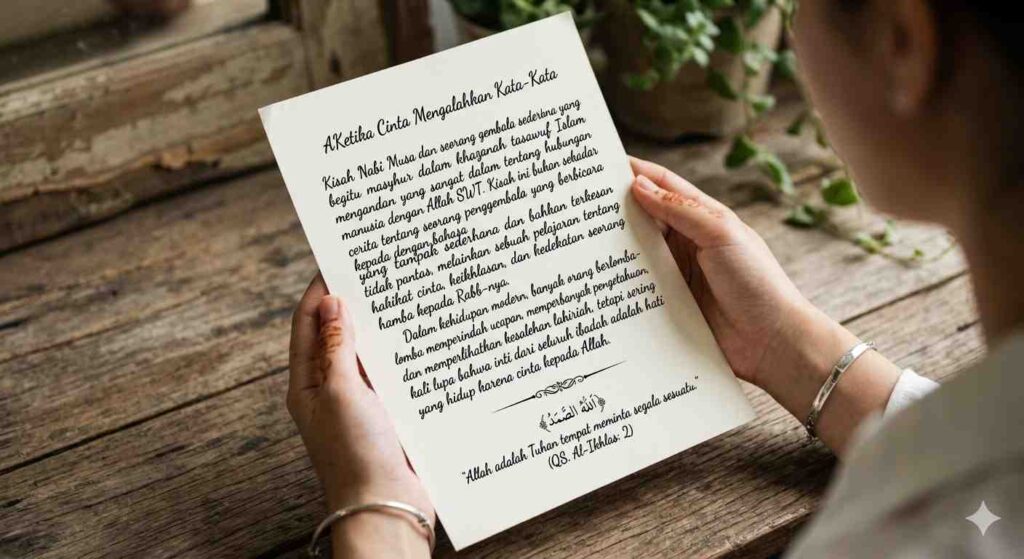 AKetika Cinta Mengalahkan Kata-Kata
Kisah Nabi Musa dan seorang gembala sederhna yang
begitu masyhur dalam khazanah tasawuf Islam
mengandan yang sangat dalam tentang hubungan
manusia dengan Allah SWT. Kisah ini bukan sekadar
cerita tentang seorang penggembala yang berbicara
kepada dengan bahasa
yang tampak sederhana dan bahkan terkesan
tidak pantas, melainkan sebuah pelajaran tentang
hakihat cinta, keikhlasan, dan kedekatan seorang
hamba kepada Rabb-nya.
Dalam kehidupan modern, banyak orang berlomba-
lomba memperindah ucapan, memperbanyak pengetahuan,
dan mempertihatkan kesalehan lahiriah, tetapi sering
kali lupa bahwa inti dari seluruh ibadah adalah hati
yang hidup karena cinta kepada Allah.
﴿اَللّٰهُ الصَّمَدُ﴾
"Allah adalah Tuhan tempat meminta segala sesuatu."
(QS. Al-Ikhlas: 2)